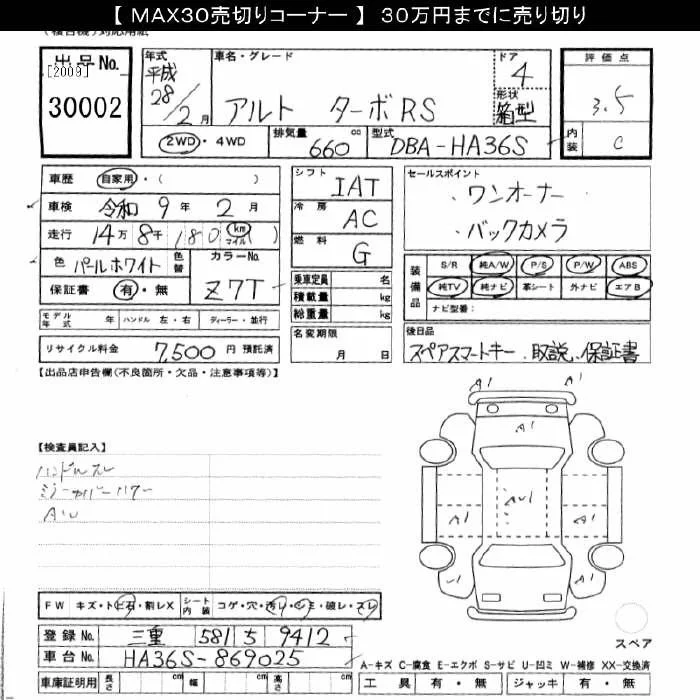 【 MAX30売切りコーナー 】 30万円までに売り切り
出品No.
[2009]
30002
年式
平成
28/2月
車名・グレード
アルト ターボRS
ドア
4
形状
箱型
評価点
3.5
内装
C
2WD・4WD
排気量
660 cc
型式
DBA-HA36S
車歴 自家用・( )
車検 令和 9年 2月
走行 14万 8千 180 (km マイル)( )
色 パールホワイト 色替
カラーNo.
Z7T
保証書 有・無
シフト
IAT
冷房
AC
燃料
G
乗車定員 名
積載量 kg
総重量 kg
名変期限
月 日
セールスポイント
・ワンオーナー
・バックカメラ
装備品
S/R 純A/W P/S P/W ABS
純TV 純ナビ 革シート 外ナビ エアB
ナビ型番:
モデル年式 年 ハンドル 左・右 ディーラー・並行
リサイクル料金 7,500 円 預託済
後日品
スペアスマートキー、取説、保証書
【出品店申告欄(不良箇所・欠品・注意事項等)】
【検査員記入】
ハンドルスレ
A1 A1
A1
A1 A1
FW キズ・トビ石・割レX
シート内装 コゲ・穴・汚レ・シミ・破レ・スレ
登録No. 三重 581 5 9412
車台No. HA36S-869025
車庫証明用 長さ cm 幅 cm 高さ cm
スペア
A-キズ C-腐食 E-エクボ S-サビ U-凹ミ W-補修 XX-交換済
工具 有・無 ジャッキ 有・無